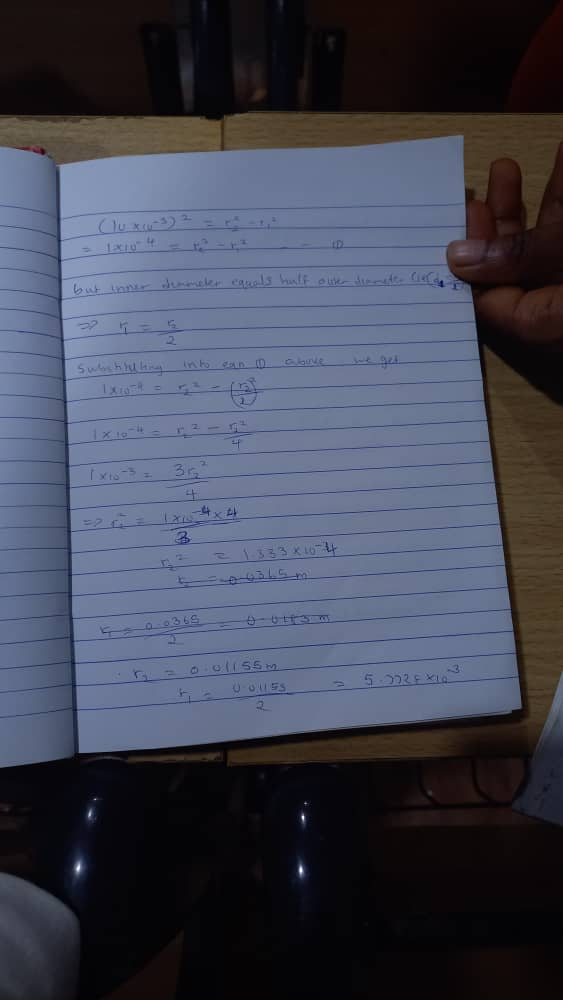 (10 × 10⁻³)² = r₂² - r₁²
= 1 × 10⁻⁴ = r₂² - r₁² - - - ①
but inner diameter equals half outer diameter
⇒ r₁ = r₂/2
Substituting into eqn ① above we get
1 × 10⁻⁴ = r₂² - (r₂/2)²
1 × 10⁻⁴ = r₂² - r₂²/4
1 × 10⁻³ = 3r₂²/4
⇒ r₂² = 1 × 10⁻⁴ × 4/3
r₂² = 1.333 × 10⁻⁴
r₂ = 0.0365 m
r₁ = 0.0365/2 = 0.0183 m
∴ r₂ = 0.01155 m
r₁ = 0.01155/2 =